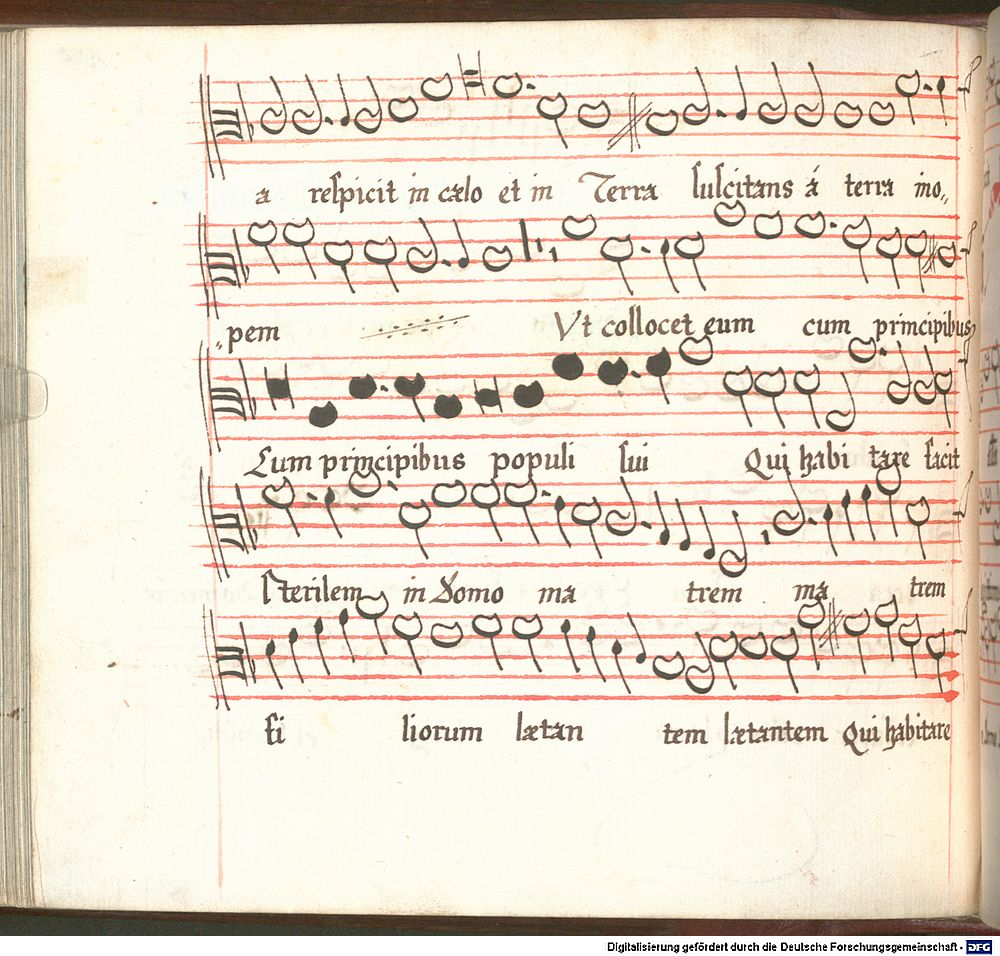 a respicit in cælo et in Terra suscitans á terra ino,,
,,pem Vt collocet eum cum principibus
Cum principibus populi sui Qui habi tare facit
sterilem in Domo ma trem ma trem
fi liorum lætan tem lætantem Qui habitare
Digitalisierung gefördert durch die Deutsche Forschungsgemeinschaft - DFG